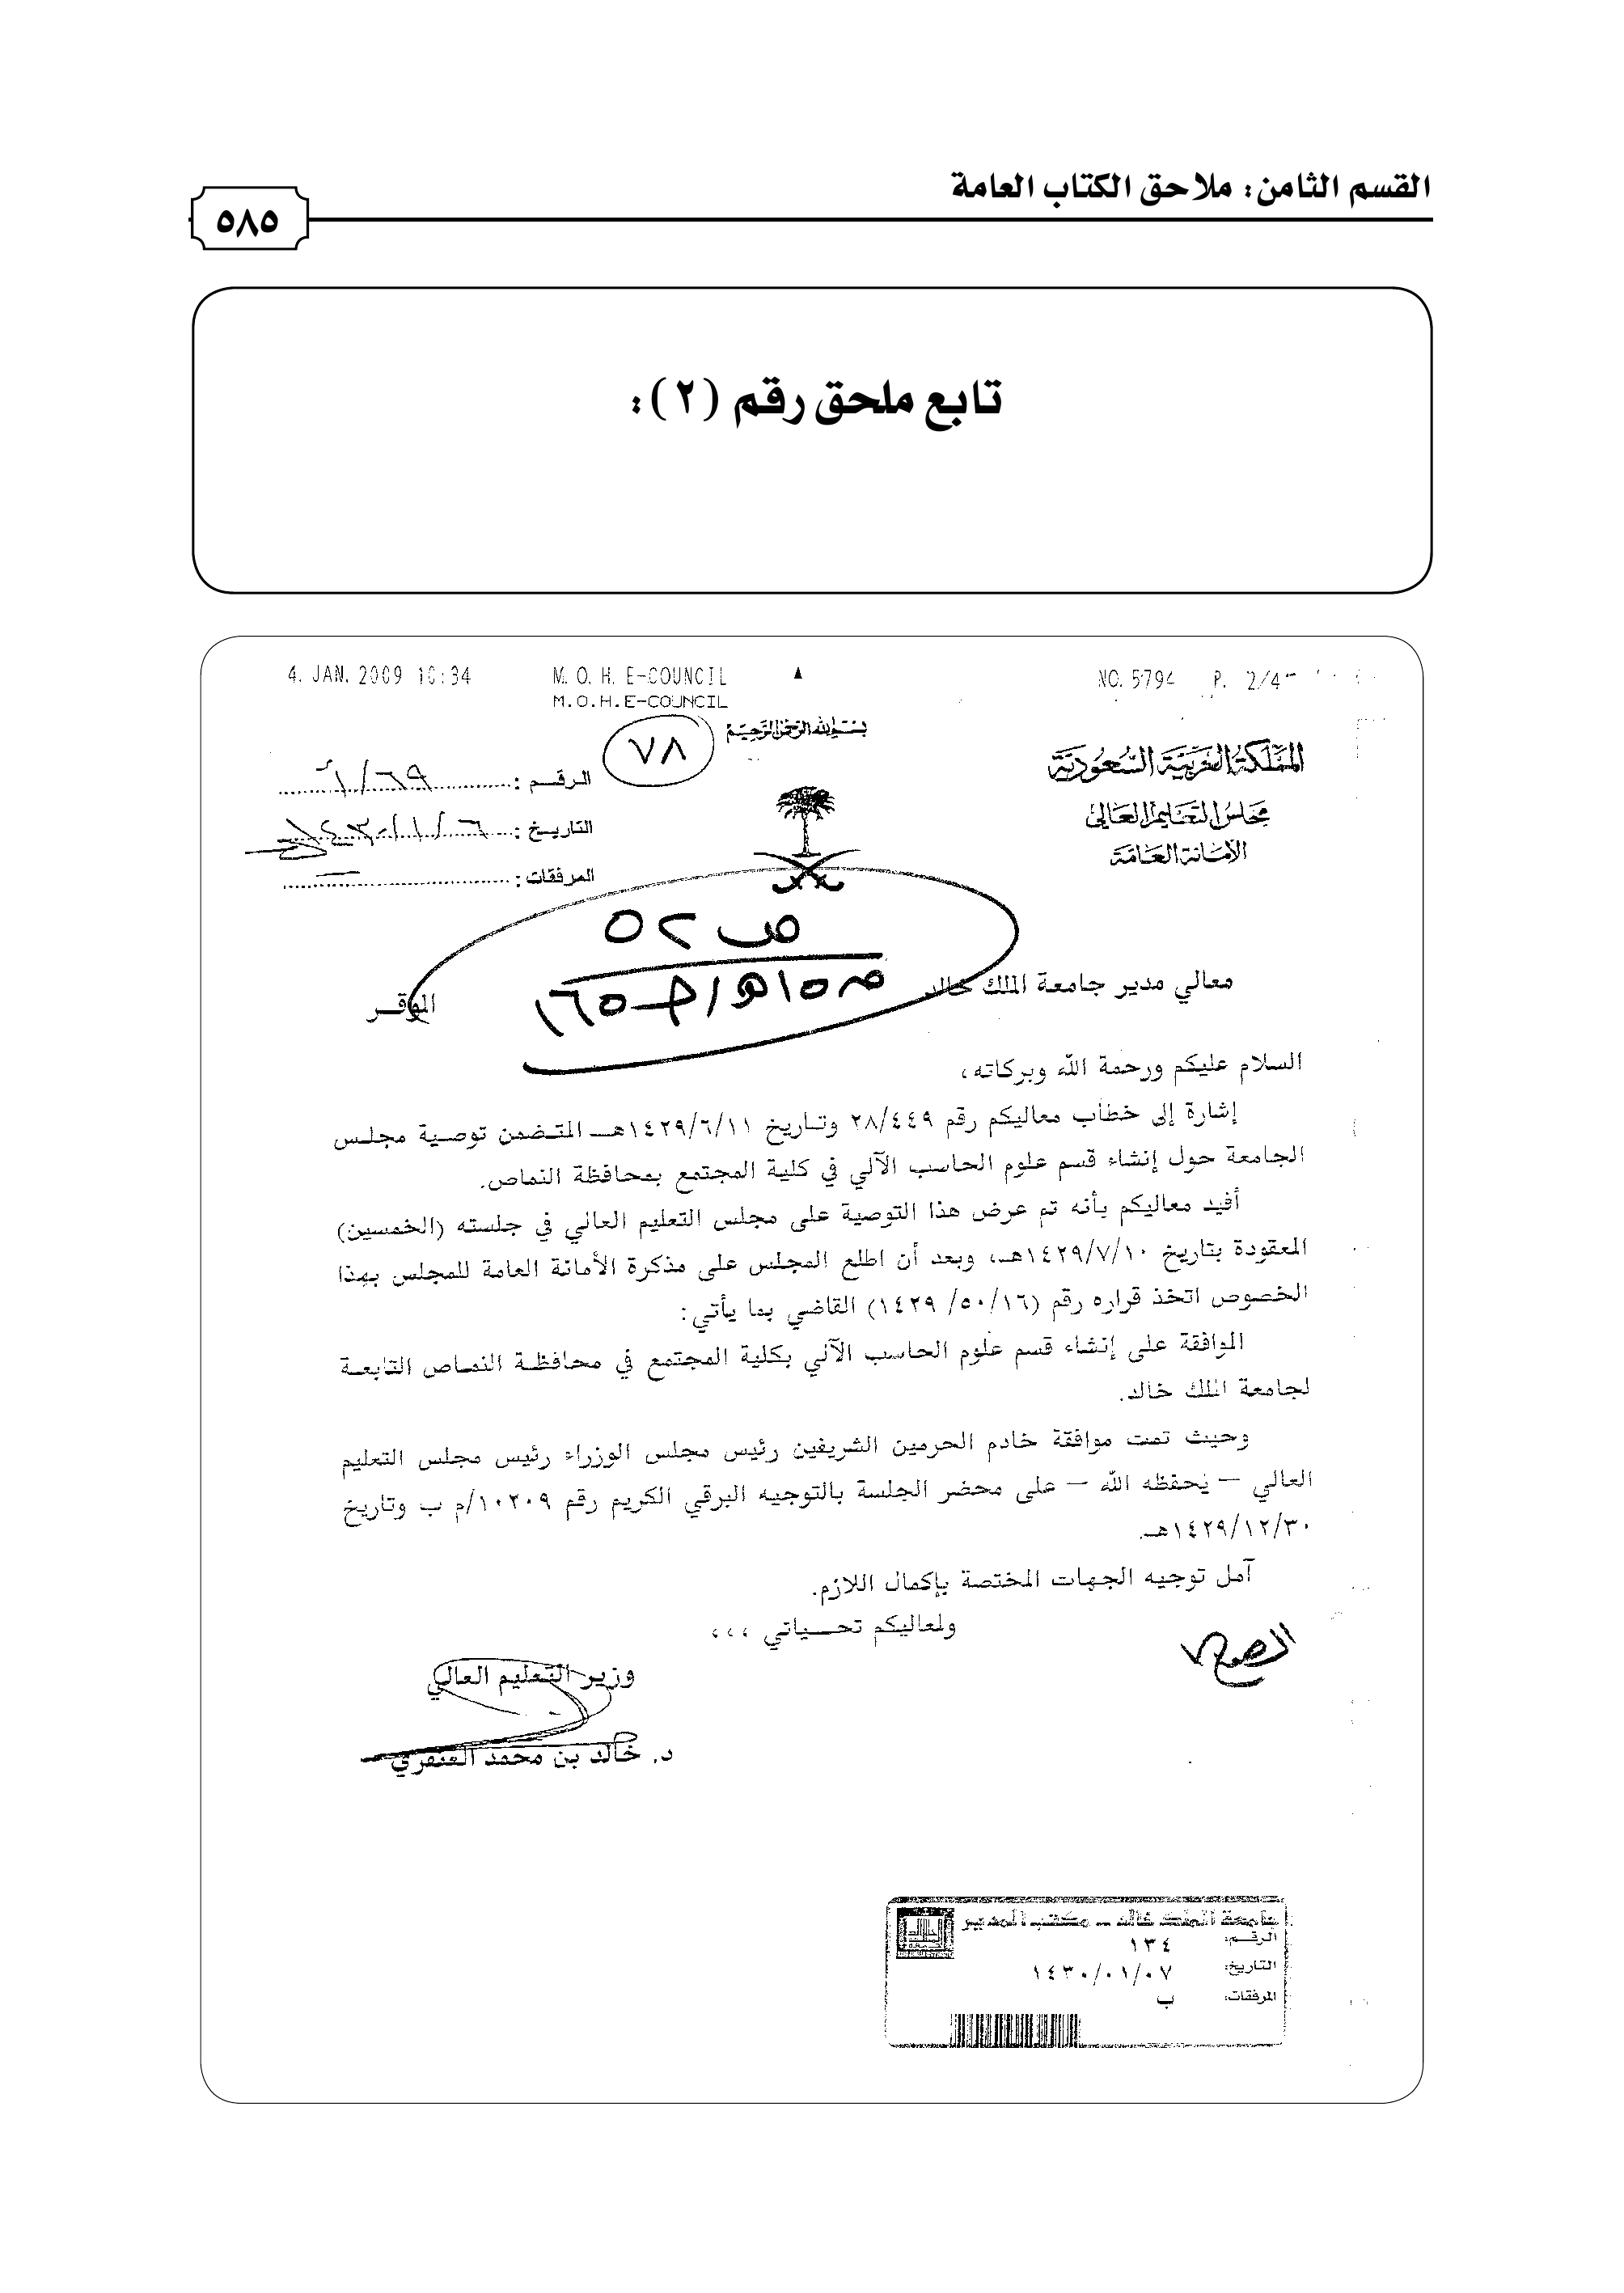 القسم الثامن: ملاحق الكتاب العامة
٥٨٥
تابع ملحق رقم (٢):
4. JAN. 2009 10:34 M. O. H. E-COUNCIL NO. 5794 P. 2/4
M.O.H.E-COUNCIL
بسم الله الرحمن الرحيم
٧٨
المملكة العربية السعودية
مجلس التعليم العالي
الأمانة العامة
الرقم : ٦٩/أ
التاريخ : ١٤٣٠/١/٦
المرفقات :
ص ٥٢
معالي مدير جامعة الملك خالد الموقر
السلام عليكم ورحمة الله وبركاته،
إشارة إلى خطاب معاليكم رقم ٢٨/٤٤٩ وتاريخ ١٤٢٩/٦/١١هـ المتضمن توصية مجلس
الجامعة حول إنشاء قسم علوم الحاسب الآلي في كلية المجتمع بمحافظة النماص.
أفيد معاليكم بأنه تم عرض هذا التوصية على مجلس التعليم العالي في جلسته (الخمسين)
المعقودة بتاريخ ١٤٢٩/٧/١٠هـ، وبعد أن اطلع المجلس على مذكرة الأمانة العامة للمجلس بهذا
الخصوص اتخذ قراره رقم (١٤٢٩ /٥٠/١٦) القاضي بما يأتي:
الموافقة على إنشاء قسم علوم الحاسب الآلي بكلية المجتمع في محافظة النماص التابعة
لجامعة الملك خالد.
وحيث تمت موافقة خادم الحرمين الشريفين رئيس مجلس الوزراء رئيس مجلس التعليم
العالي – يحفظه الله – على محضر الجلسة بالتوجيه البرقي الكريم رقم ١٠٢٠٩/م ب وتاريخ
١٤٢٩/١٢/٣٠هـ.
آمل توجيه الجهات المختصة بإكمال اللازم.
ولمعاليكم تحياتي ،،،
وزير التعليم العالي
د. خالد بن محمد العنقري
جامعة الملك خالد - مكتب المدير
الرقم: ١٣٤
التاريخ: ١٤٣٠/٠١/٠٧
المرفقات: ب